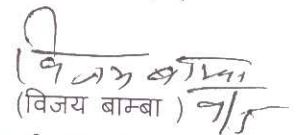 विजय बाम्बा
(विजय बाम्बा)